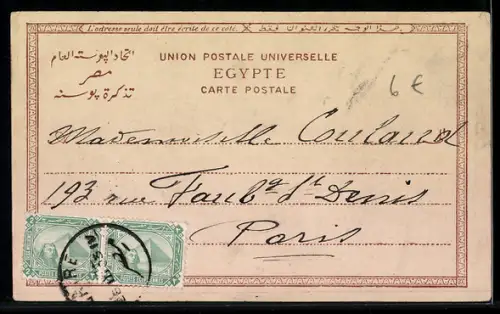 L'adresse seule doit être écrite de ce côté.
اتحاد البوسته العام
مصر
تذكرة بوسته
UNION POSTALE UNIVERSELLE
EGYPTE
CARTE POSTALE
6 €
Mademoiselle
193 rue Faubg St Denis
Paris
CAIRE